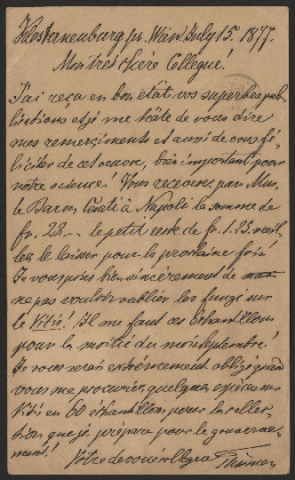 Klosterneuburg pr. Wien July 15. 1877.
Mon très chère Collegue!
J'ai reçu en bon état vos superbes pub-
lications et je me hâte de vous dire
mes remerçiments et aussi de vous fé-
liciter de cet oeuvre, très important pour
notre science! Vous recevrez par Mus.
le Baron Cesati à Napoli la somme de
fr. 28.— le petit reste de fr. 1.25. veuil-
lez le laisser pour la prochaine fois!
Je vous prie bien sincèrement de
ne pas vouloir oublier les fungi sur
le Vitis! Il me faut ces échantillons
pour la moitié du mois Septembre!
Je vous serais extrèmement obligé quand
vous me procuriez quelques espèces sur
Vitis en 60 échantillons pour la collec-
tion que je prépare pour le gouverne-
ment! Vôtre devoué collegue Thümen